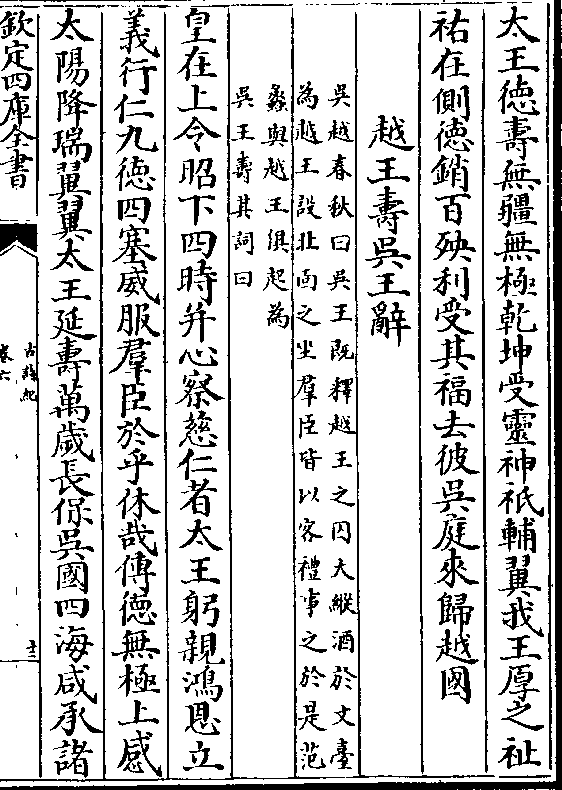 太王德壽無疆無極乾坤受靈神祇輔翼我王厚之祉
祐在側德銷百殃利受其福去彼吳庭來歸越國
越王壽吳王辭
吳越春秋曰吳王既釋越王之囚大縱酒於文臺
為越王設北面之坐羣臣皆以客禮事之於是范
蠡與越王俱起為
吳王壽其詞曰
皇在上令昭下四時并心察慈仁者太王躬親鴻恩立
義行仁九德四塞威服羣臣於乎休哉傳德無極上感
太陽降瑞翼翼太王延壽萬歲長保吳國四海咸承諸
欽定四庫全書
古詩紀
卷六
十二